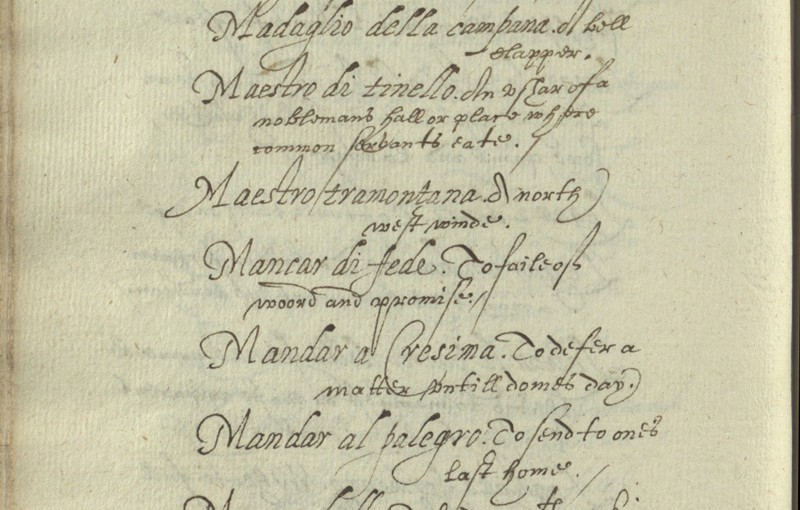 Madaglio della campana. A bell
clapper.
Maestro di tinello. An vshar of a
noblemans hall or place where
common servants eate.
Maestro tramontana. A north
west winde.
Mancar di fede. To faile of
woord and promise.
Mandar a Cresima. To defer a
matter vntill domes day.
Mandar al palegro. To send to ones
last home.